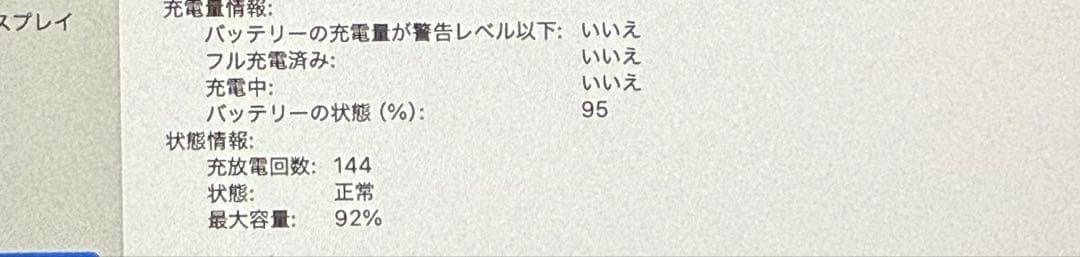 スプレイ
充電量情報:
バッテリーの充電量が警告レベル以下: いいえ
フル充電済み: いいえ
充電中: いいえ
バッテリーの状態 (%): 95
状態情報:
充放電回数: 144
状態: 正常
最大容量: 92%